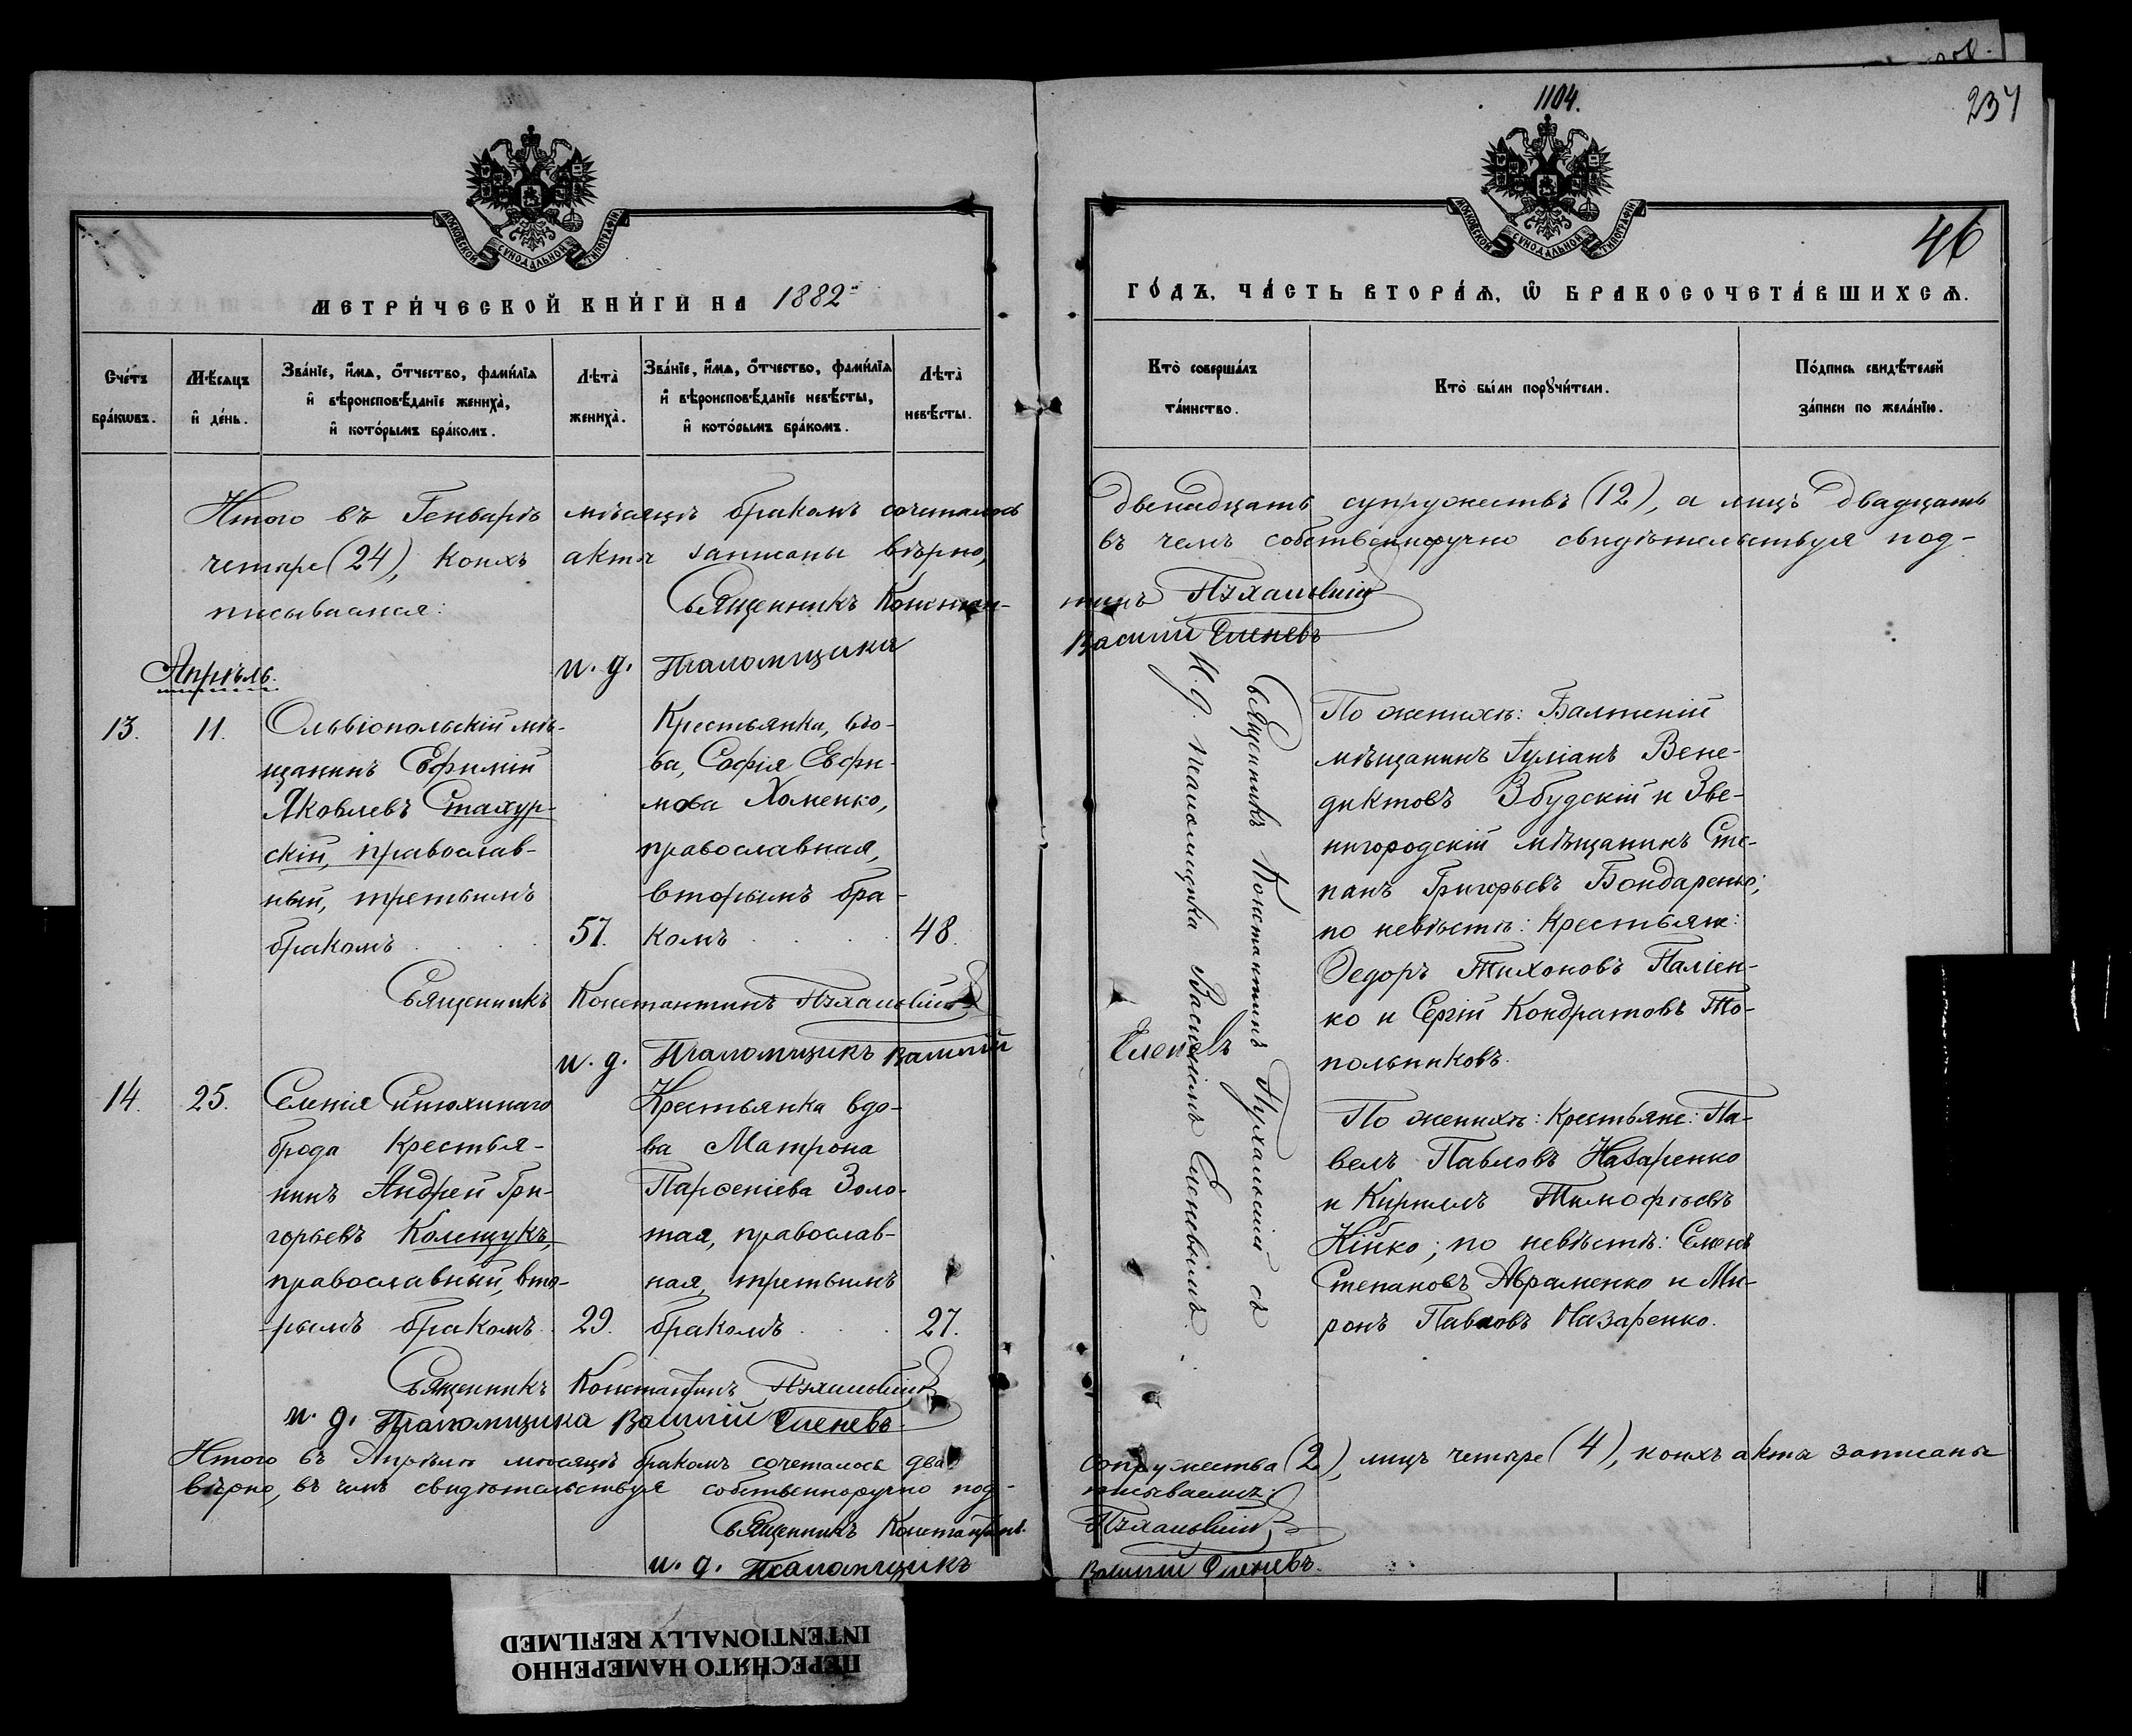 1104.
237
46
МОСКОВСКОЙ СѴНОДАЛЬНОЙ ТИПОГРАФІИ
МОСКОВСКОЙ СѴНОДАЛЬНОЙ ТИПОГРАФІИ
МЕТРИ́ЧЕСКОЙ КНИ́ГИ НА 1882
ГО́ДЪ, ЧА́СТЬ ВТОРА́Ѧ, Ѡ БРАКОСОЧЕТА́ВШИХСѦ.
Сче́тъ бра́кѡвъ.
Мѣ́сѧцъ и҆ де́нь.
Зва́нїе, и҆́мѧ, ѻ҆́тчество, фами́лїѧ и҆ вѣроисповѣ́данїе жениха̀, и҆ кото́рымъ бра́комъ.
Лѣта̀ жениха̀.
Зва́нїе, и҆́мѧ, ѻ҆́тчество, фами́лїѧ и҆ вѣроисповѣ́данїе невѣ́сты, и҆ кото́рымъ бра́комъ.
Лѣта̀ невѣ́сты.
Кто̀ соверша́лъ та́инство.
Кто̀ бы́ли порꙋчи́тели.
По́дпись свидѣ́телей за́писи по жела́нїю.
Итого въ Генварѣ мѣсяцѣ бракомъ сочеталось
двенадцать супружествъ (12), а лицъ двадцать
четыре (24), коихъ акты записаны вѣрно,
въ чемъ собственноручно свидѣтельствуя под-
писываемся:
Священникъ Констан-
тинъ Пухальскій
и. д. Псаломщика
Василій Еленевъ
Апрѣль.
13.
11.
Ольвіопольскій мѣ-
щанинъ Ефимій
Яковлевъ Стахур-
скій, православ-
ный, третьимъ
бракомъ
57.
Крестьянка, вдо-
ва, Софія Евфи-
мова Хоменко,
православная,
вторымъ бра-
комъ
48.
Священникъ Константинъ Пухальскій съ
и. д. псаломщика Василіемъ Еленевымъ.
По женихѣ: Балтскій
мѣщанинъ Іуліанъ Вене-
диктовъ Збудскій и Зве-
нигородскій мѣщанинъ Сте-
панъ Григорьевъ Бондаренко;
по невѣстѣ: Крестьяне:
Ѳедоръ Тихоновъ Паліен-
ко и Сергій Кондратовъ То-
польниковъ.
Священникъ Константинъ Пухальскій
и. д. Псаломщикъ Василій
Еленевъ
14.
25.
Селенія Синюхинаго
брода крестья-
нинъ Андрей Гри-
горьевъ Колещукъ,
православный, вто-
рымъ бракомъ
29.
Крестьянка вдо-
ва Матрона
Парѳеніева Золо-
тая, православ-
ная, третьимъ
бракомъ
27.
По женихѣ: Крестьяне: Па-
велъ Павловъ Назаренко
и Кириллъ Тимофѣевъ
Кійко; по невѣстѣ: Семенъ
Степановъ Авраменко и Ми-
ронъ Павловъ Назаренко.
Священникъ Константинъ Пухальскій
и. д. Псаломщика Василій Еленевъ
Итого въ Апрѣлѣ мѣсяцѣ бракомъ сочеталось два
супружества (2), лицъ четыре (4), коихъ акты записаны
вѣрно, въ чемъ свидѣтельствуя собственноручно под-
писываемся:
Священникъ Константинъ
Пухальскій
и. д. Псаломщикъ
Василій Еленевъ.
ПЕРЕСНЯТО НАМЕРЕННО
INTENTIONALLY REFILMED